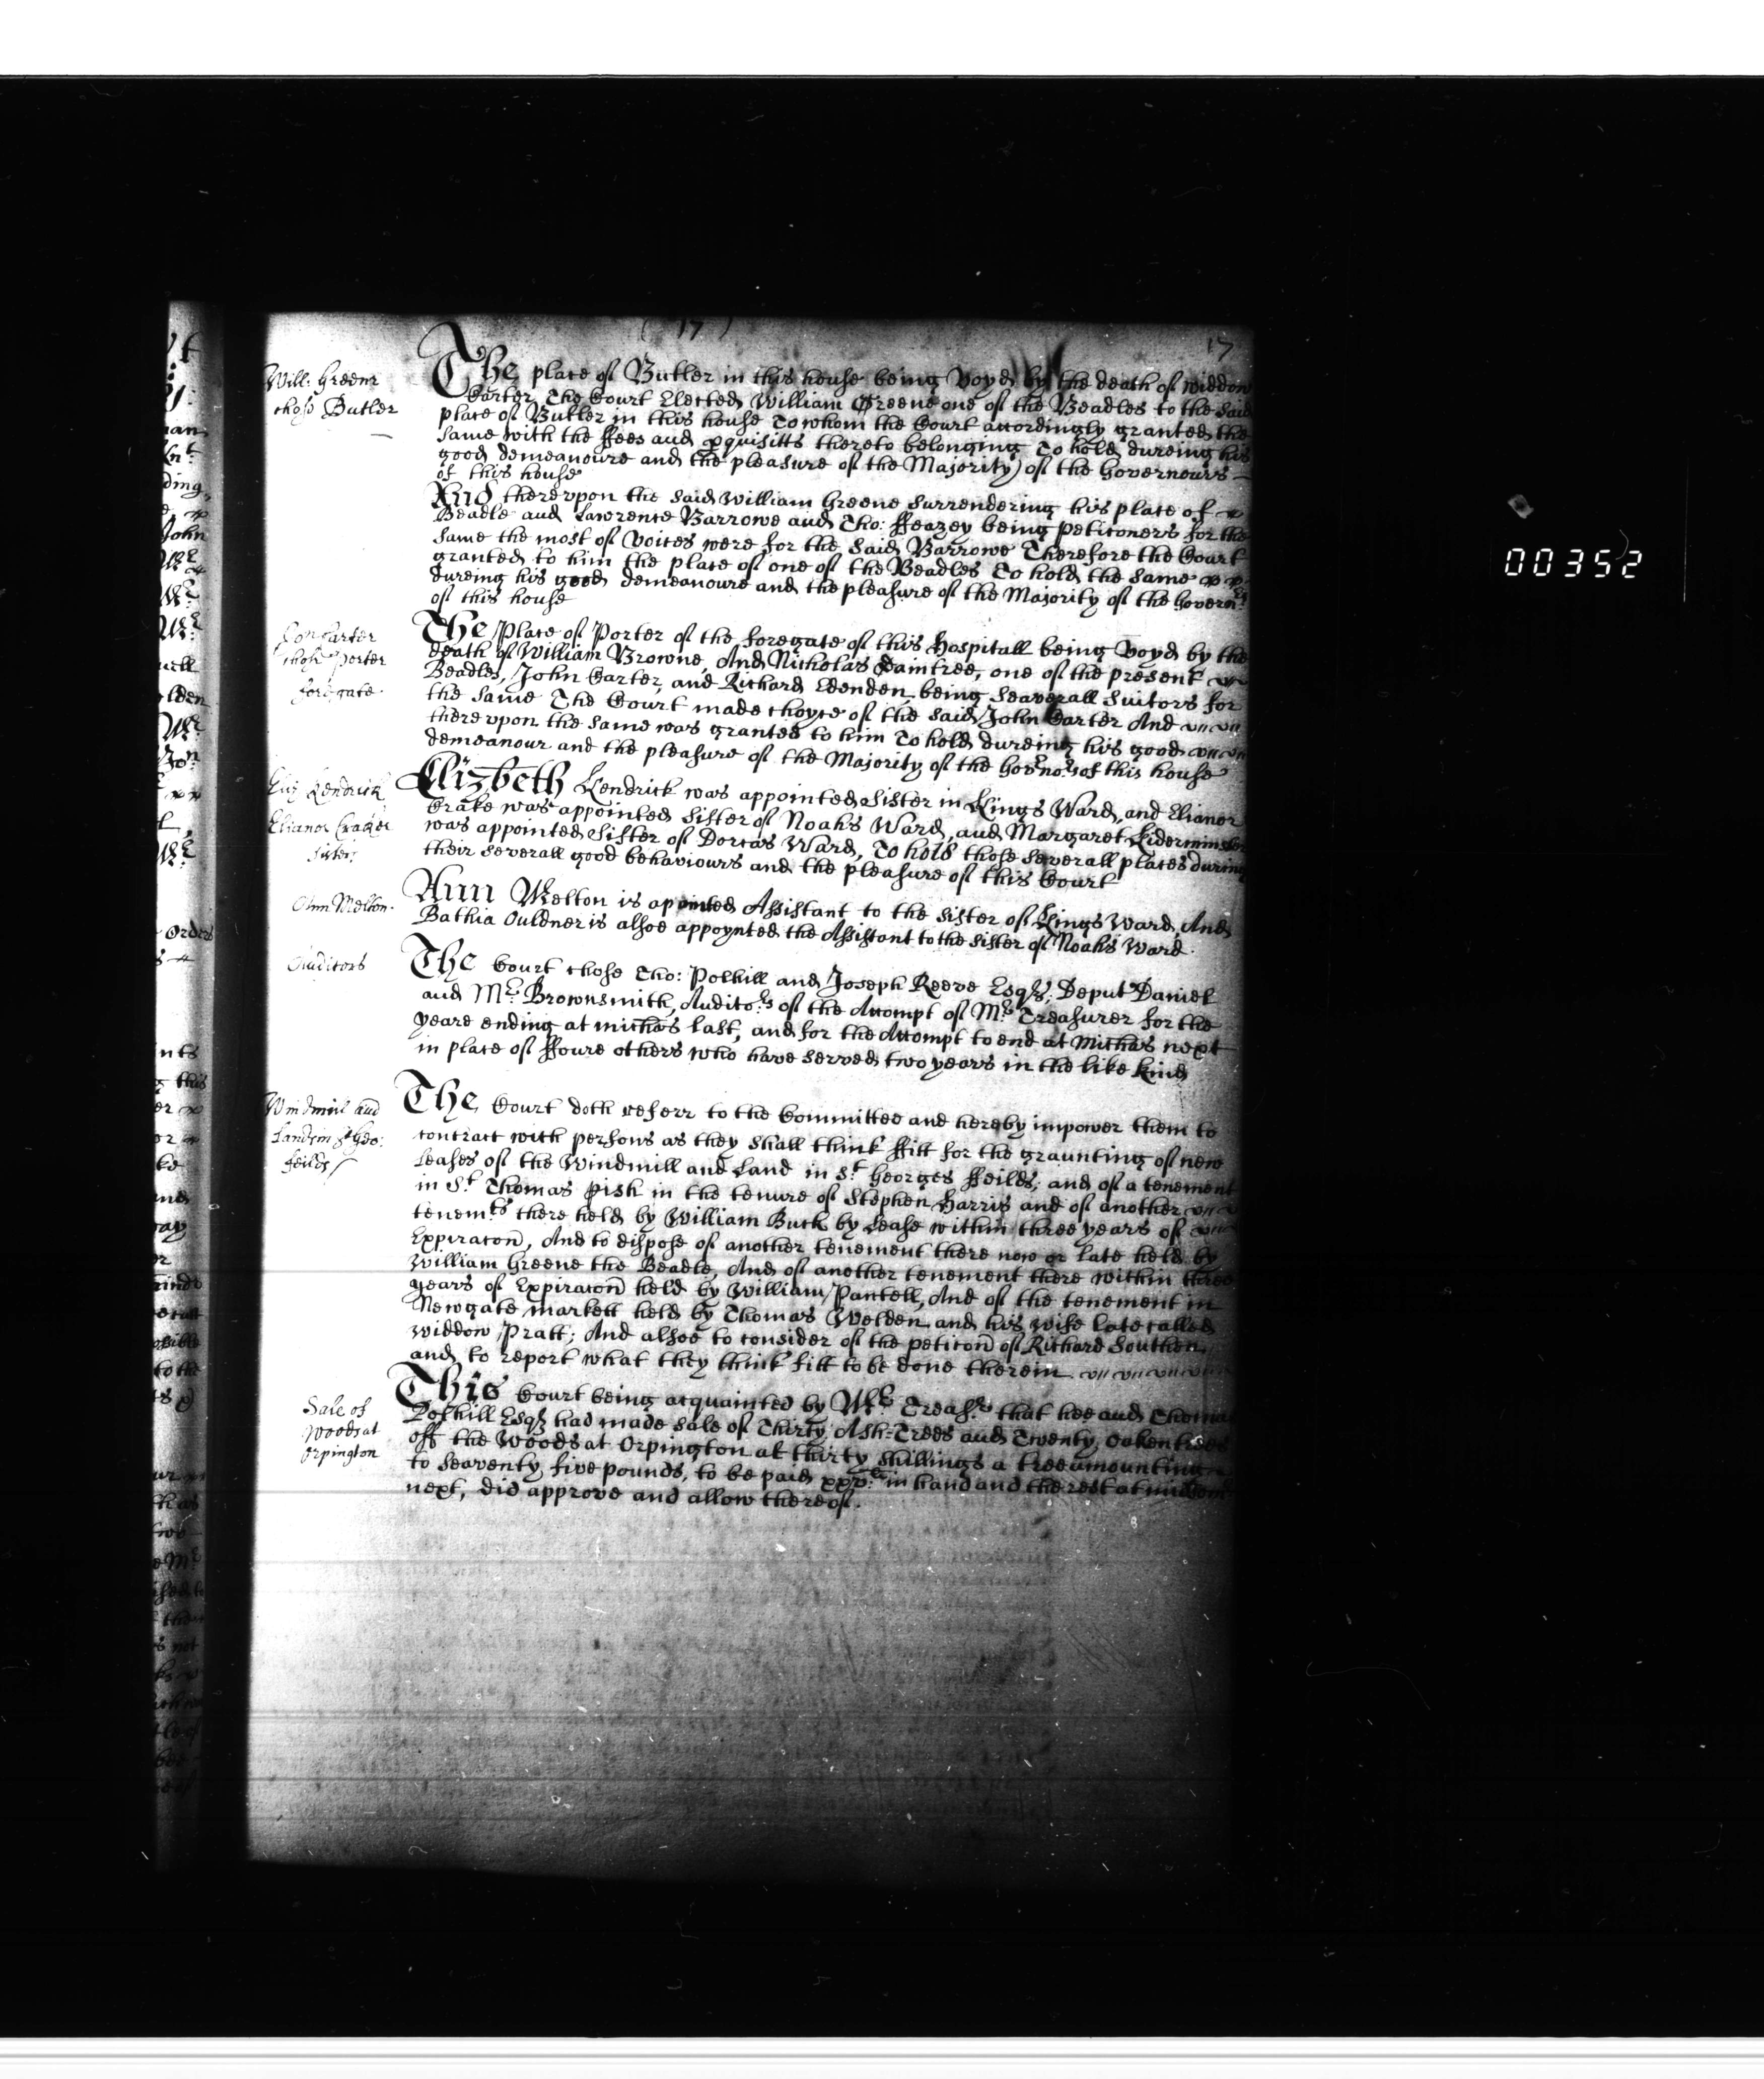 ( 17 )
17
Will: Greene
chose Butler
The place of Butler in this house being voyd by the death of widdow
Carter The Court Elected William Greene one of the Beadles to the said
place of Butler in this house To whom the Court accordingly granted the
same with the ffees and pquisitts thereto belonging To hold dureing his
good demeanoure and the pleasure of the Majority of the Governours
of this house
And thereupon the said William Greene Surrendering his place of
Beadle and Lawrence Barrowe and Tho: ffeazey being petitoners for the
same the most of voices were for the said Barrowe Therefore the Court
granted to him the place of one of the Beadles To hold the same
dureing his good demeanoure and the pleasure of the Majority of the Govern:rs
of this house
Jon Carter
chose Porter
foregate
The Place of Porter of the foregate of this Hospitall being voyd by the
death of William Browne, And Nicholas Daintree, one of the present
Beadles, John Carter, and Richard Edenden being Seaverall Suitors for
the same The Court made choyce of the said John Carter And
thereupon the same was granted to him To hold dureing his good
demeanour and the pleasure of the Majority of the Gov:no:rs of this house
Eliz Kendrick
Elianor Craker
sisters
Elizbeth Kendrick was appointed Sister in Kings Ward, and Elianor
Crake was appointed Sister of Noahs Ward, and Margaret Kiderminster
was appointed Sister of Dorcas Ward, To hold those severall places during
their severall good behaviours and the pleasure of this Court
Ann Melton
Ann Melton is apointed Assistant to the Sister of Kings Ward, And
Bathia Ouldner is alsoe appoynted the Assistant to the Sister of Noahs Ward
Auditors
The Court chose Tho: Polhill and Joseph Reeve Esqrs; Deput Daniel
and Mr: Brownsmith, Audito:rs of the Accompt of Mr: Treasurer for the
yeare ending at michas last, and for the Accompt to end at Michas next
in place of ffoure others who have served two years in the like kind
Windmill and
Land in St Geo:
feilds
The Court doth referr to the Committee and hereby impower them to
contract with persons as they shall think ffitt for the graunting of new
Leases of the Windmill and Land in St Georges ffeilds; and of a tenement
in St Thomas pish in the tenure of Stephen Harris and of another
tenemts there held by William Buck by Lease within three years of
Expiracon, And to dispose of another tenement there now or late held by
William Greene the Beadle, And of another tenement there within three
years of Expiracon held by William Pantell, And of the tenement in
Newgate markett held by Thomas Welden and his wife late called
widdow Pratt; And alsoe to consider of the peticon of Richard Southen
and to report what they think fitt to be done therein
Sale of
Woods at
Orpington
This Court being acquainted by Mr: Treasr: that hee and Thomas
Polhill Esqr had made Sale of Thirty Ash-Trees and Twenty Oaken trees
off the Woods at Orpington at thirty shillings a tree amounting
to seaventy five pounds, to be paid xxxv:li in hand and the rest at
next, did approve and allow thereof.
00352